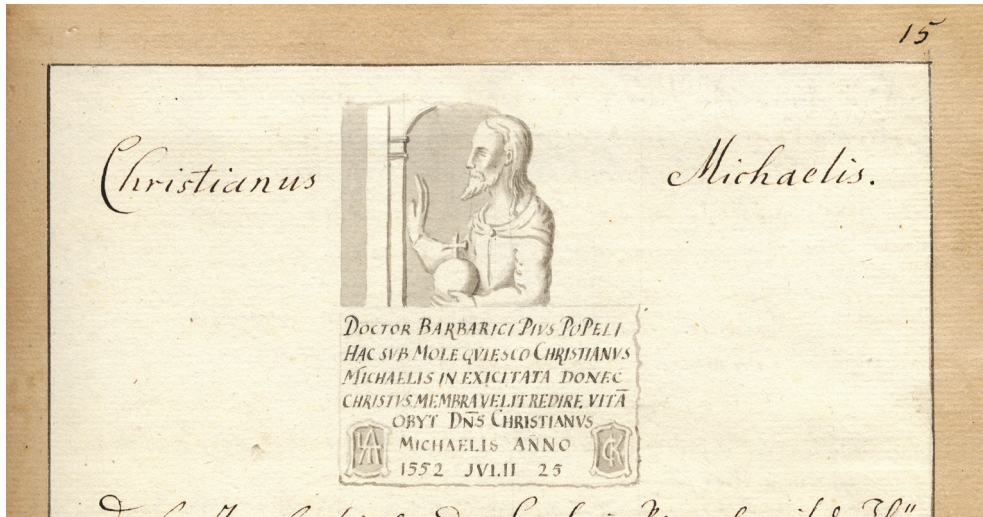 15
Christianus Michaelis.
DOCTOR BARBARICI PIVS POPELI
HAC SVB MOLE QVIESCO CHRISTIANVS
MICHAELIS IN EXICITATA DONEC
CHRISTVS MEMBRA VELIT REDIRE. VITĀ
OBYT DN̄S CHRISTIANVS
MICHAELIS AÑNO
1552 JVLII 25